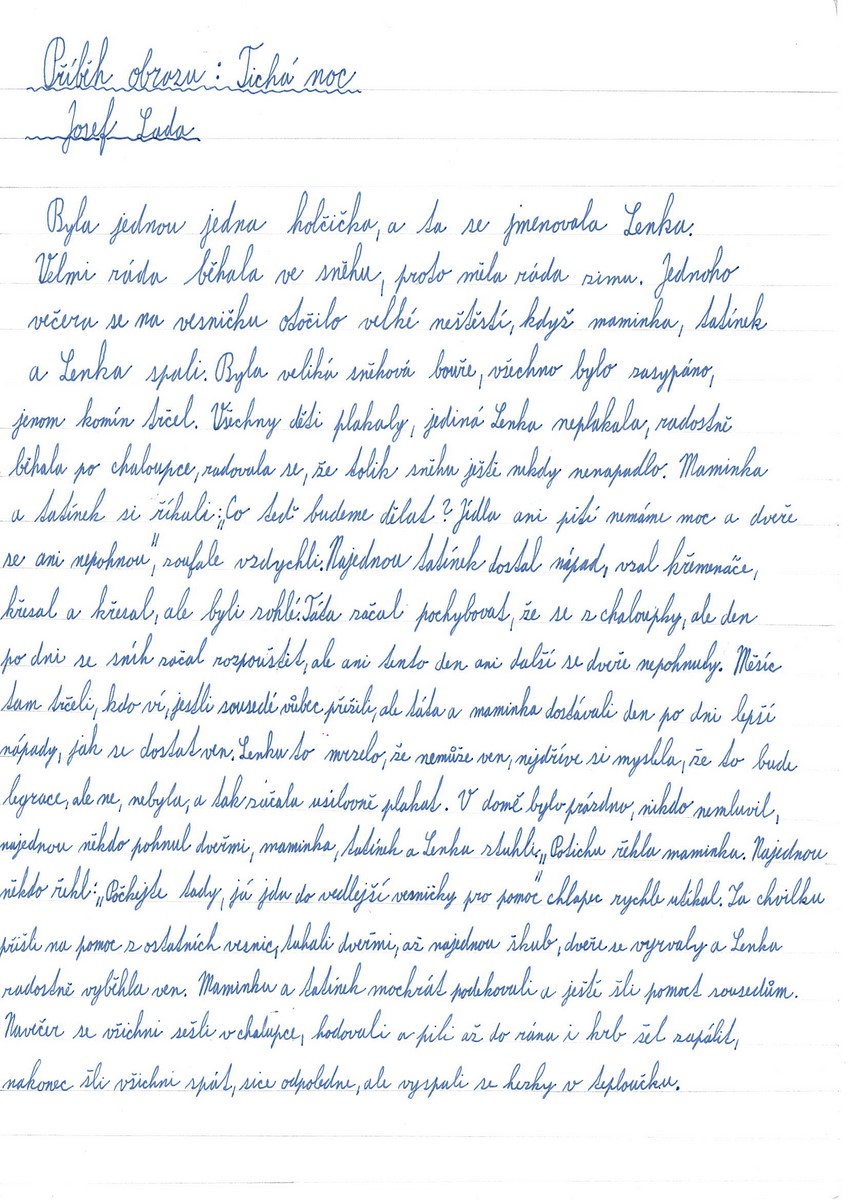 Příběh obrazu: Tichá noc
Josef Lada
Byla jednou jedna holčička, a ta se jmenovala Lenka.
Velmi ráda běhala ve sněhu, proto měla ráda zimu. Jednoho
večera se na vesničku otočilo velké neštěstí, když maminka, tatínek
a Lenka spali. Byla veliká sněhová bouře, všechno bylo zasypáno,
jenom komín trčel. Všechny děti plakaly, jediná Lenka neplakala, radostně
běhala po chaloupce, radovala se, že tolik sněhu ještě nikdy nenapadlo. Maminka
a tatínek si říkali: „Co teď budeme dělat? Jídla ani pití nemáme moc a dveře
se ani nepohnou“, zoufale vzdychli. Najednou tatínek dostal nápad, vzal křemenáče,
křesal a křesal, ale byli zvhlé. Táta začal pochybovat, že se z chaloupky, ale den
po dni se sníh začal rozpouštit, ale ani tento den ani další se dveře nepohnudy. Měsíc
tam trčeli, kdo ví, jestli sousedé vůbec přežili, ale táta a maminka dostávali den po dni lepší
nápady, jak se dostat ven. Lenku to mrzelo, že nemůže ven, nejdříve si myslela, že to bude
legrace, ale ne, nebyla, a tak začala usilovně plakat. V domě bylo prázdno, nikdo nemluvil,
najednou někdo pohnul dveřmi, maminka, tatínek a Lenka ztuhli. „Potichu řekla maminka. Najednou
někdo řekl: „Počkejte tady, já jdu do vedlejší vesničky pro pomoc“ chlapec rychle utíkal. Za chvilku
přišli na pomoc z ostatních vesnic, tahali dveřmi, až najednou škub, dveře se vyrvaly a Lenka
radostně vyběhla ven. Maminka a tatínek mockrát poděkovali a ještě šli pomoct sousedům.
Navečer se všichni sešli v chalupce, hodovali a pili až do rána i krb šel zapálit,
nakonec šli všichni spát, sice odpoledne, ale vyspali se hezky v teploučku.